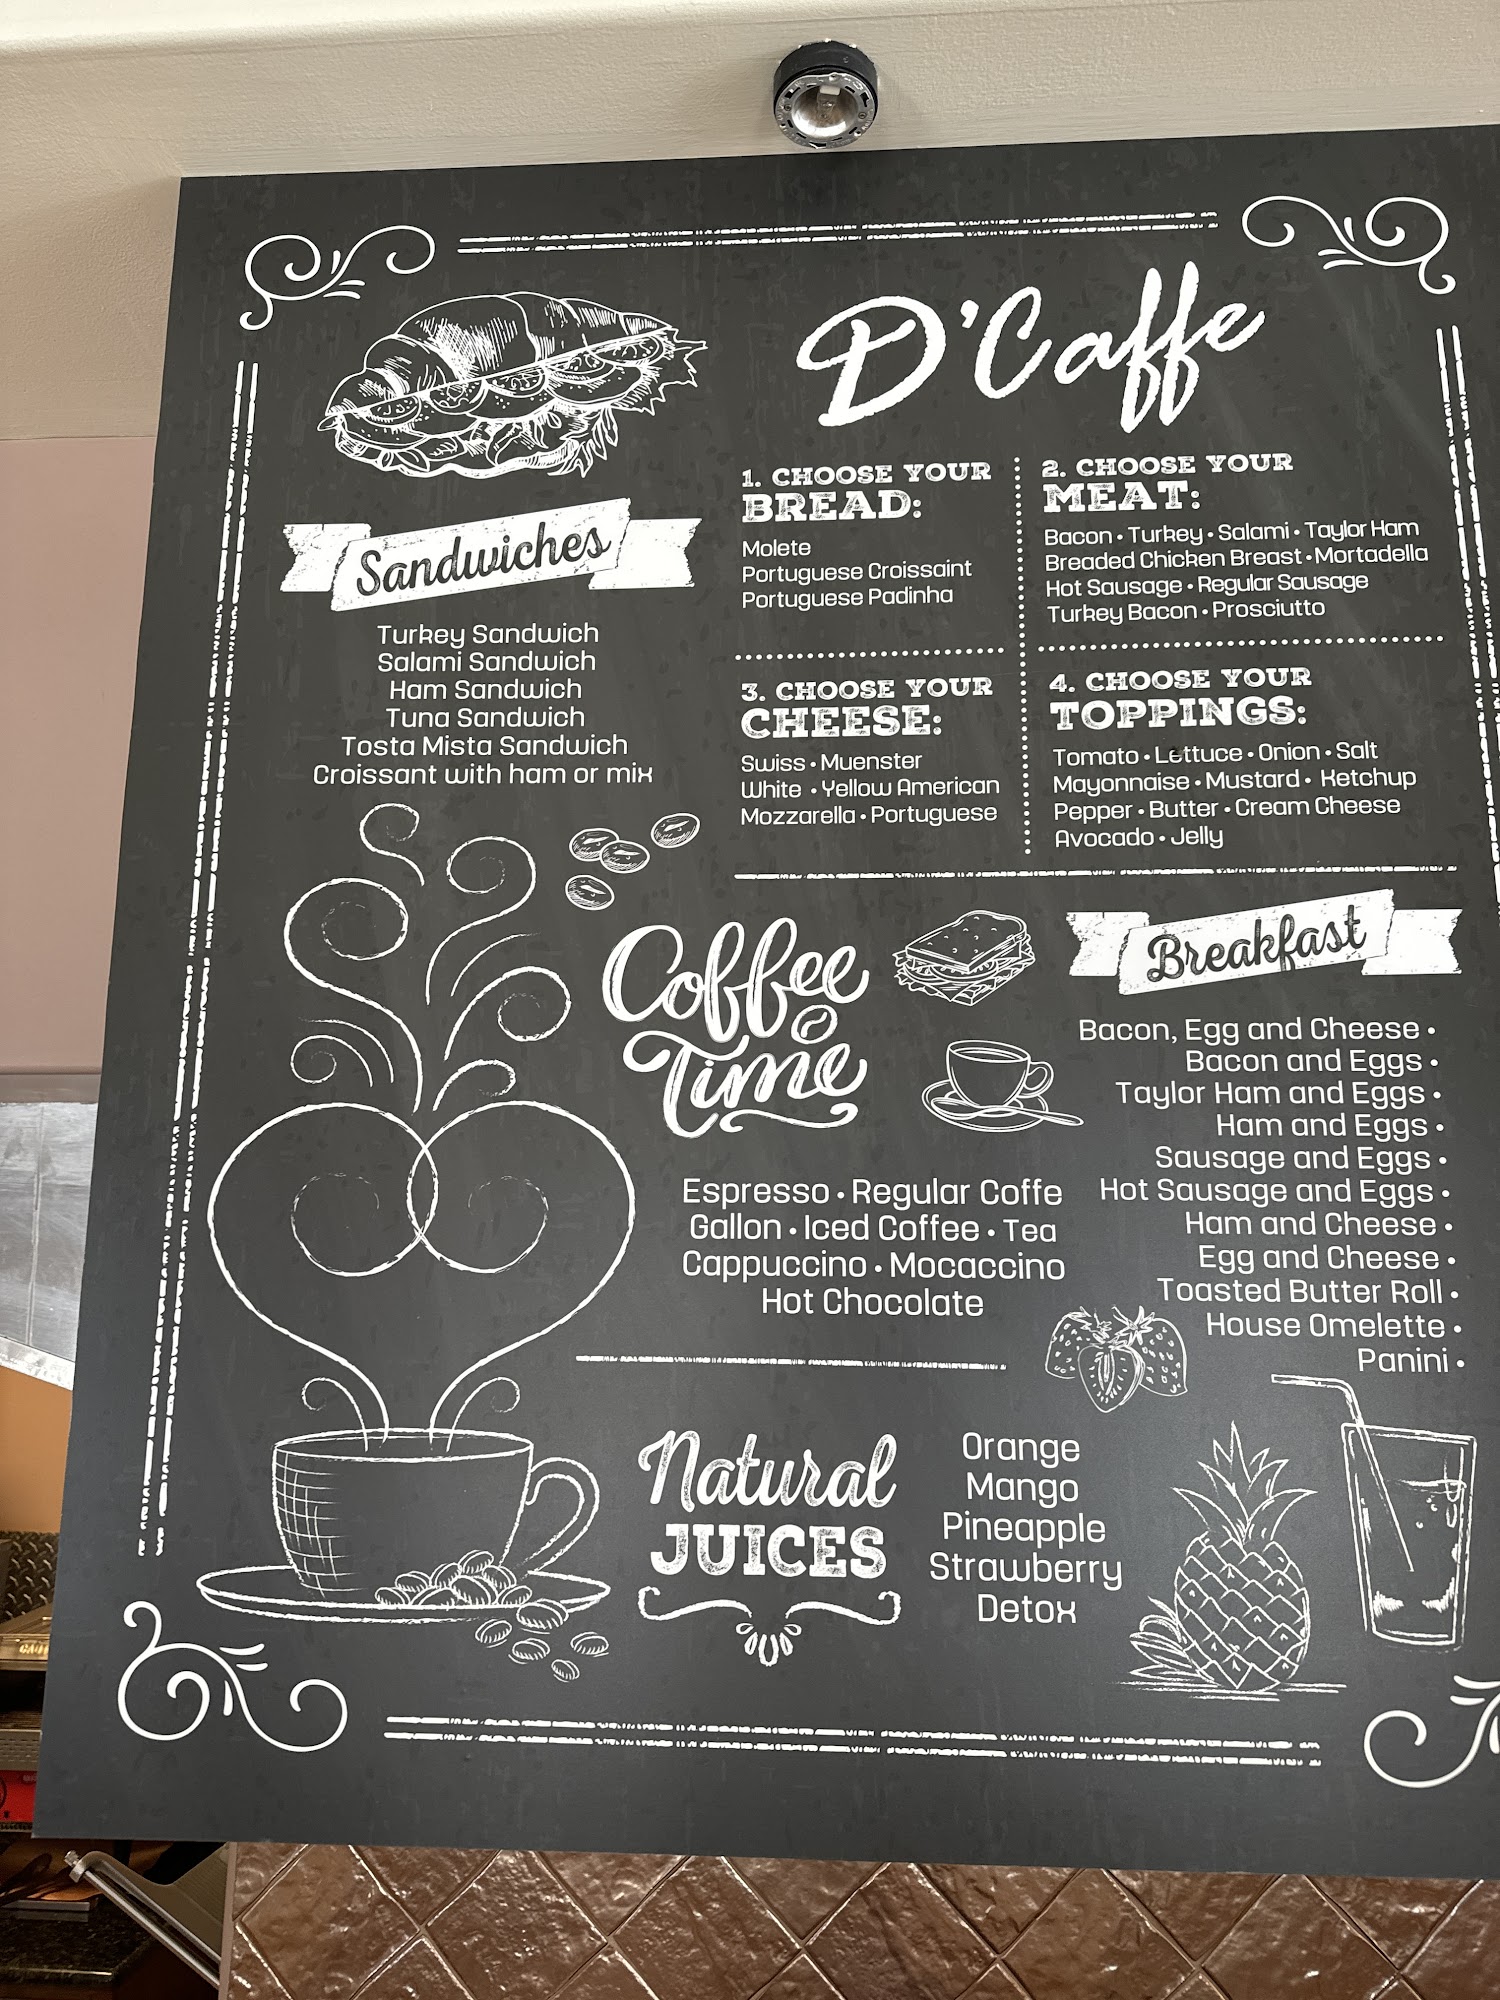 D'Caffe
Sandwiches
Turkey Sandwich
Salami Sandwich
Ham Sandwich
Tuna Sandwich
Tosta Mista Sandwich
Croissant with ham or mix
1. CHOOSE YOUR
BREAD:
Molete
Portuguese Croissaint
Portuguese Padinha
2. CHOOSE YOUR
MEAT:
Bacon • Turkey • Salami • Taylor Ham
Breaded Chicken Breast • Mortadella
Hot Sausage • Regular Sausage
Turkey Bacon • Prosciutto
3. CHOOSE YOUR
CHEESE:
Swiss • Muenster
White • Yellow American
Mozzarella • Portuguese
4. CHOOSE YOUR
TOPPINGS:
Tomato • Lettuce • Onion • Salt
Mayonnaise • Mustard • Ketchup
Pepper • Butter • Cream Cheese
Avocado • Jelly
Coffee
Time
Espresso • Regular Coffe
Gallon • Iced Coffee • Tea
Cappuccino • Mocaccino
Hot Chocolate
Breakfast
Bacon, Egg and Cheese •
Bacon and Eggs •
Taylor Ham and Eggs •
Ham and Eggs •
Sausage and Eggs •
Hot Sausage and Eggs •
Ham and Cheese •
Egg and Cheese •
Toasted Butter Roll •
House Omelette •
Panini •
Natural
JUICES
Orange
Mango
Pineapple
Strawberry
Detox